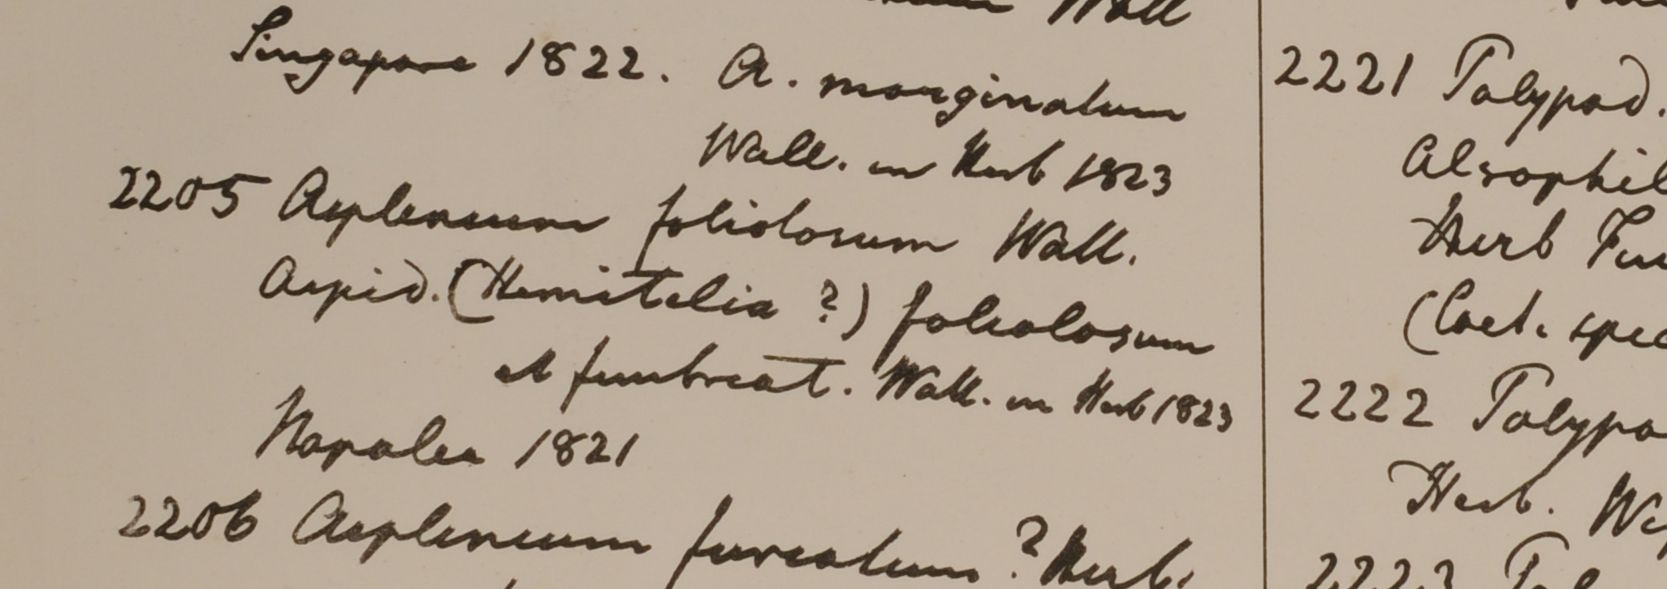 Wall
Singapore 1822. A. marginatum
Wall. in Herb 1823
2205 Asplenium foliolosum Wall.
Aspid. (Hemitelia ?) foliolosum
et fimbreat. Wall. in Herb 1823
Napalea 1821
2206 Asplenium furcatum ? Herb.
2221 Polypod.
Alsophil
Herb
(Coel. spec
2222 Polypo
Herb. W
2223 Pol